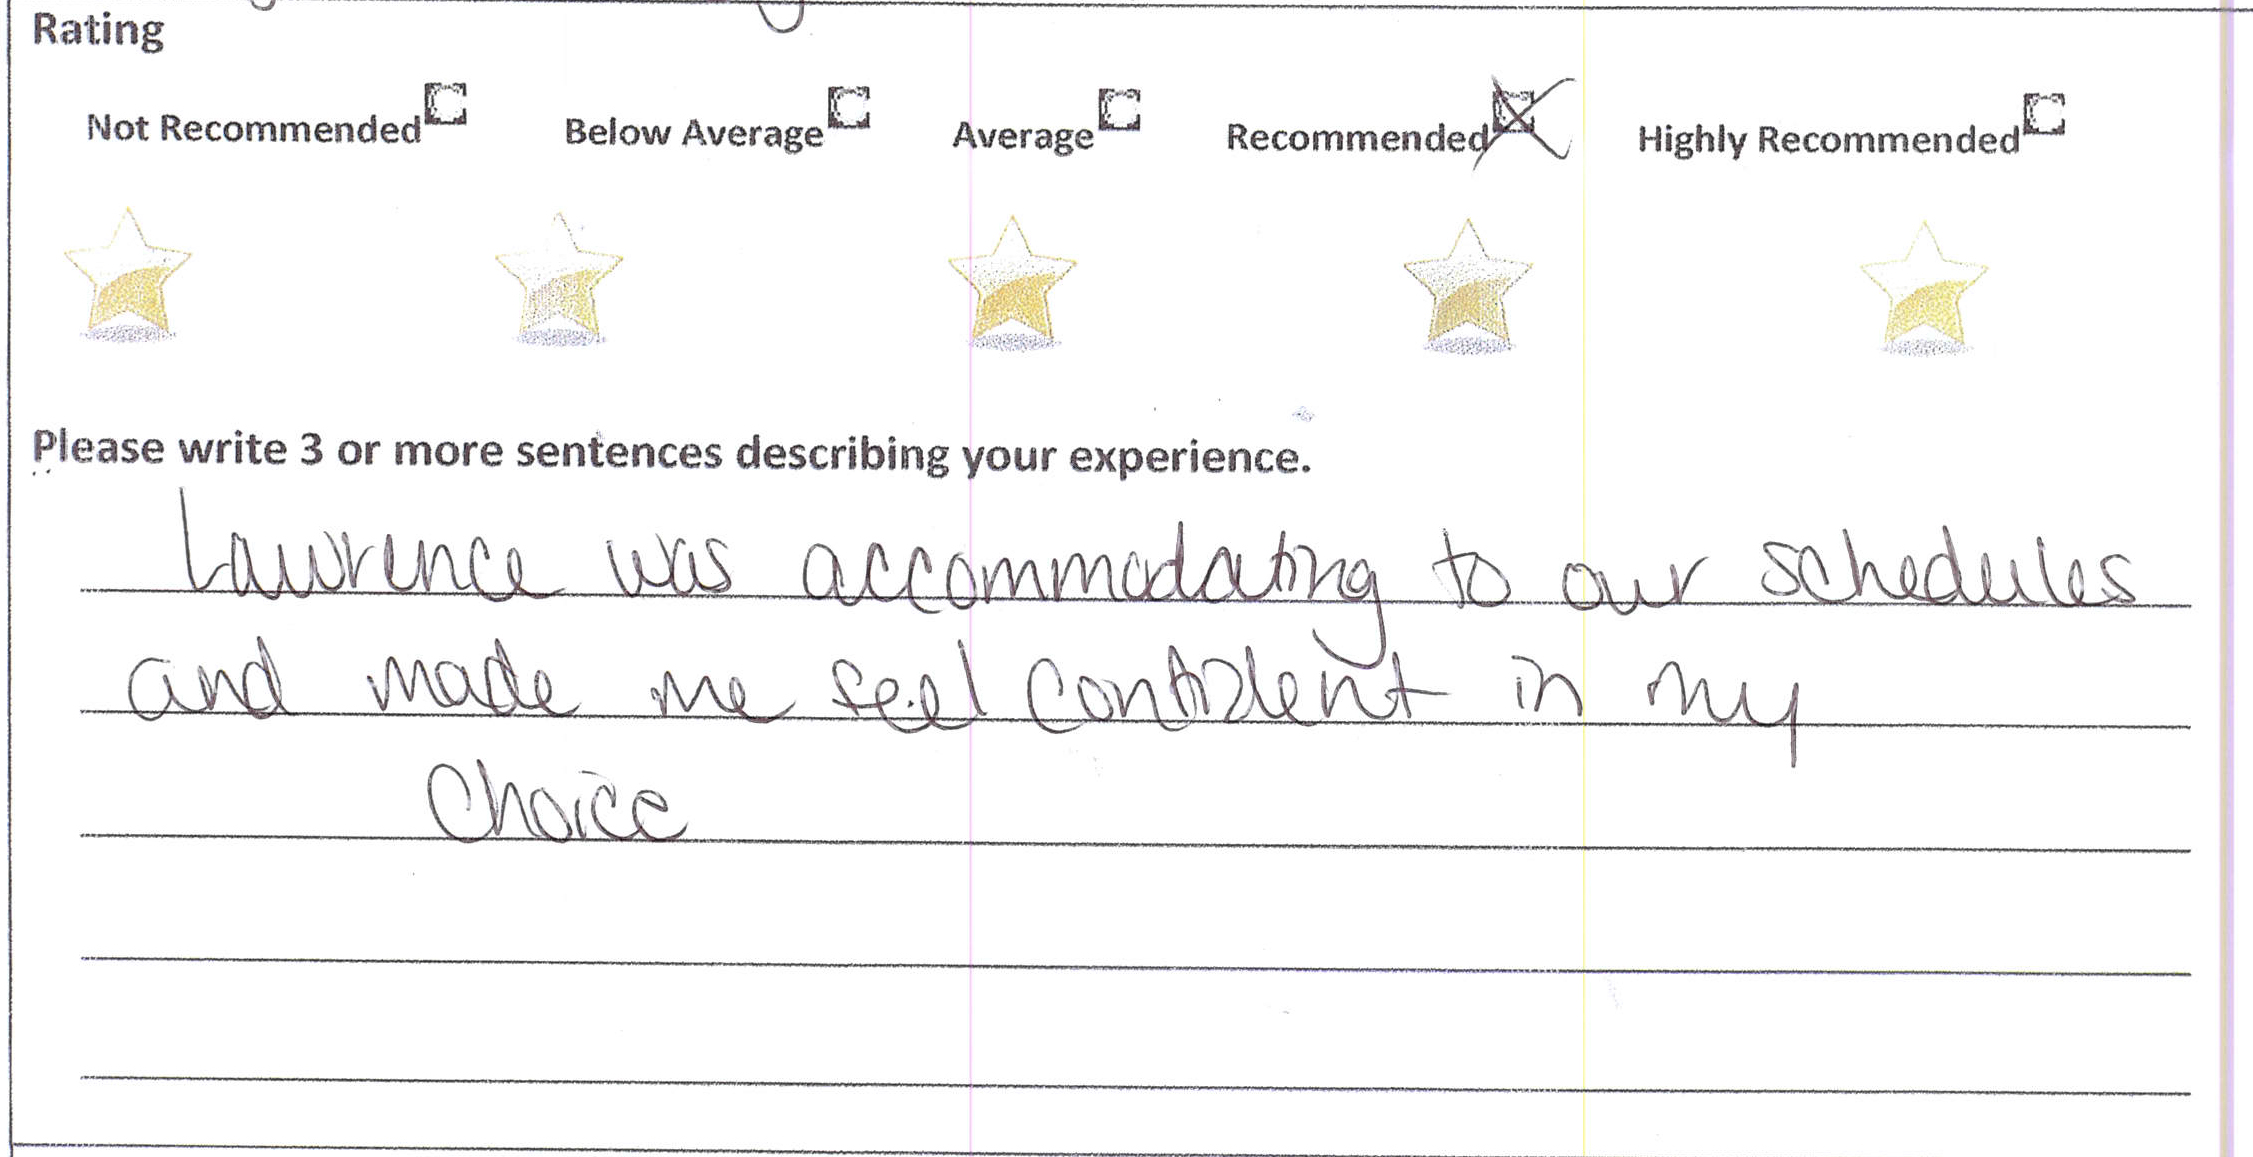 Rating
Not Recommended Below Average Average Recommended Highly Recommended
Please write 3 or more sentences describing your experience.
Lawrence was accommodating to our schedules
and made me feel confident in my
choice